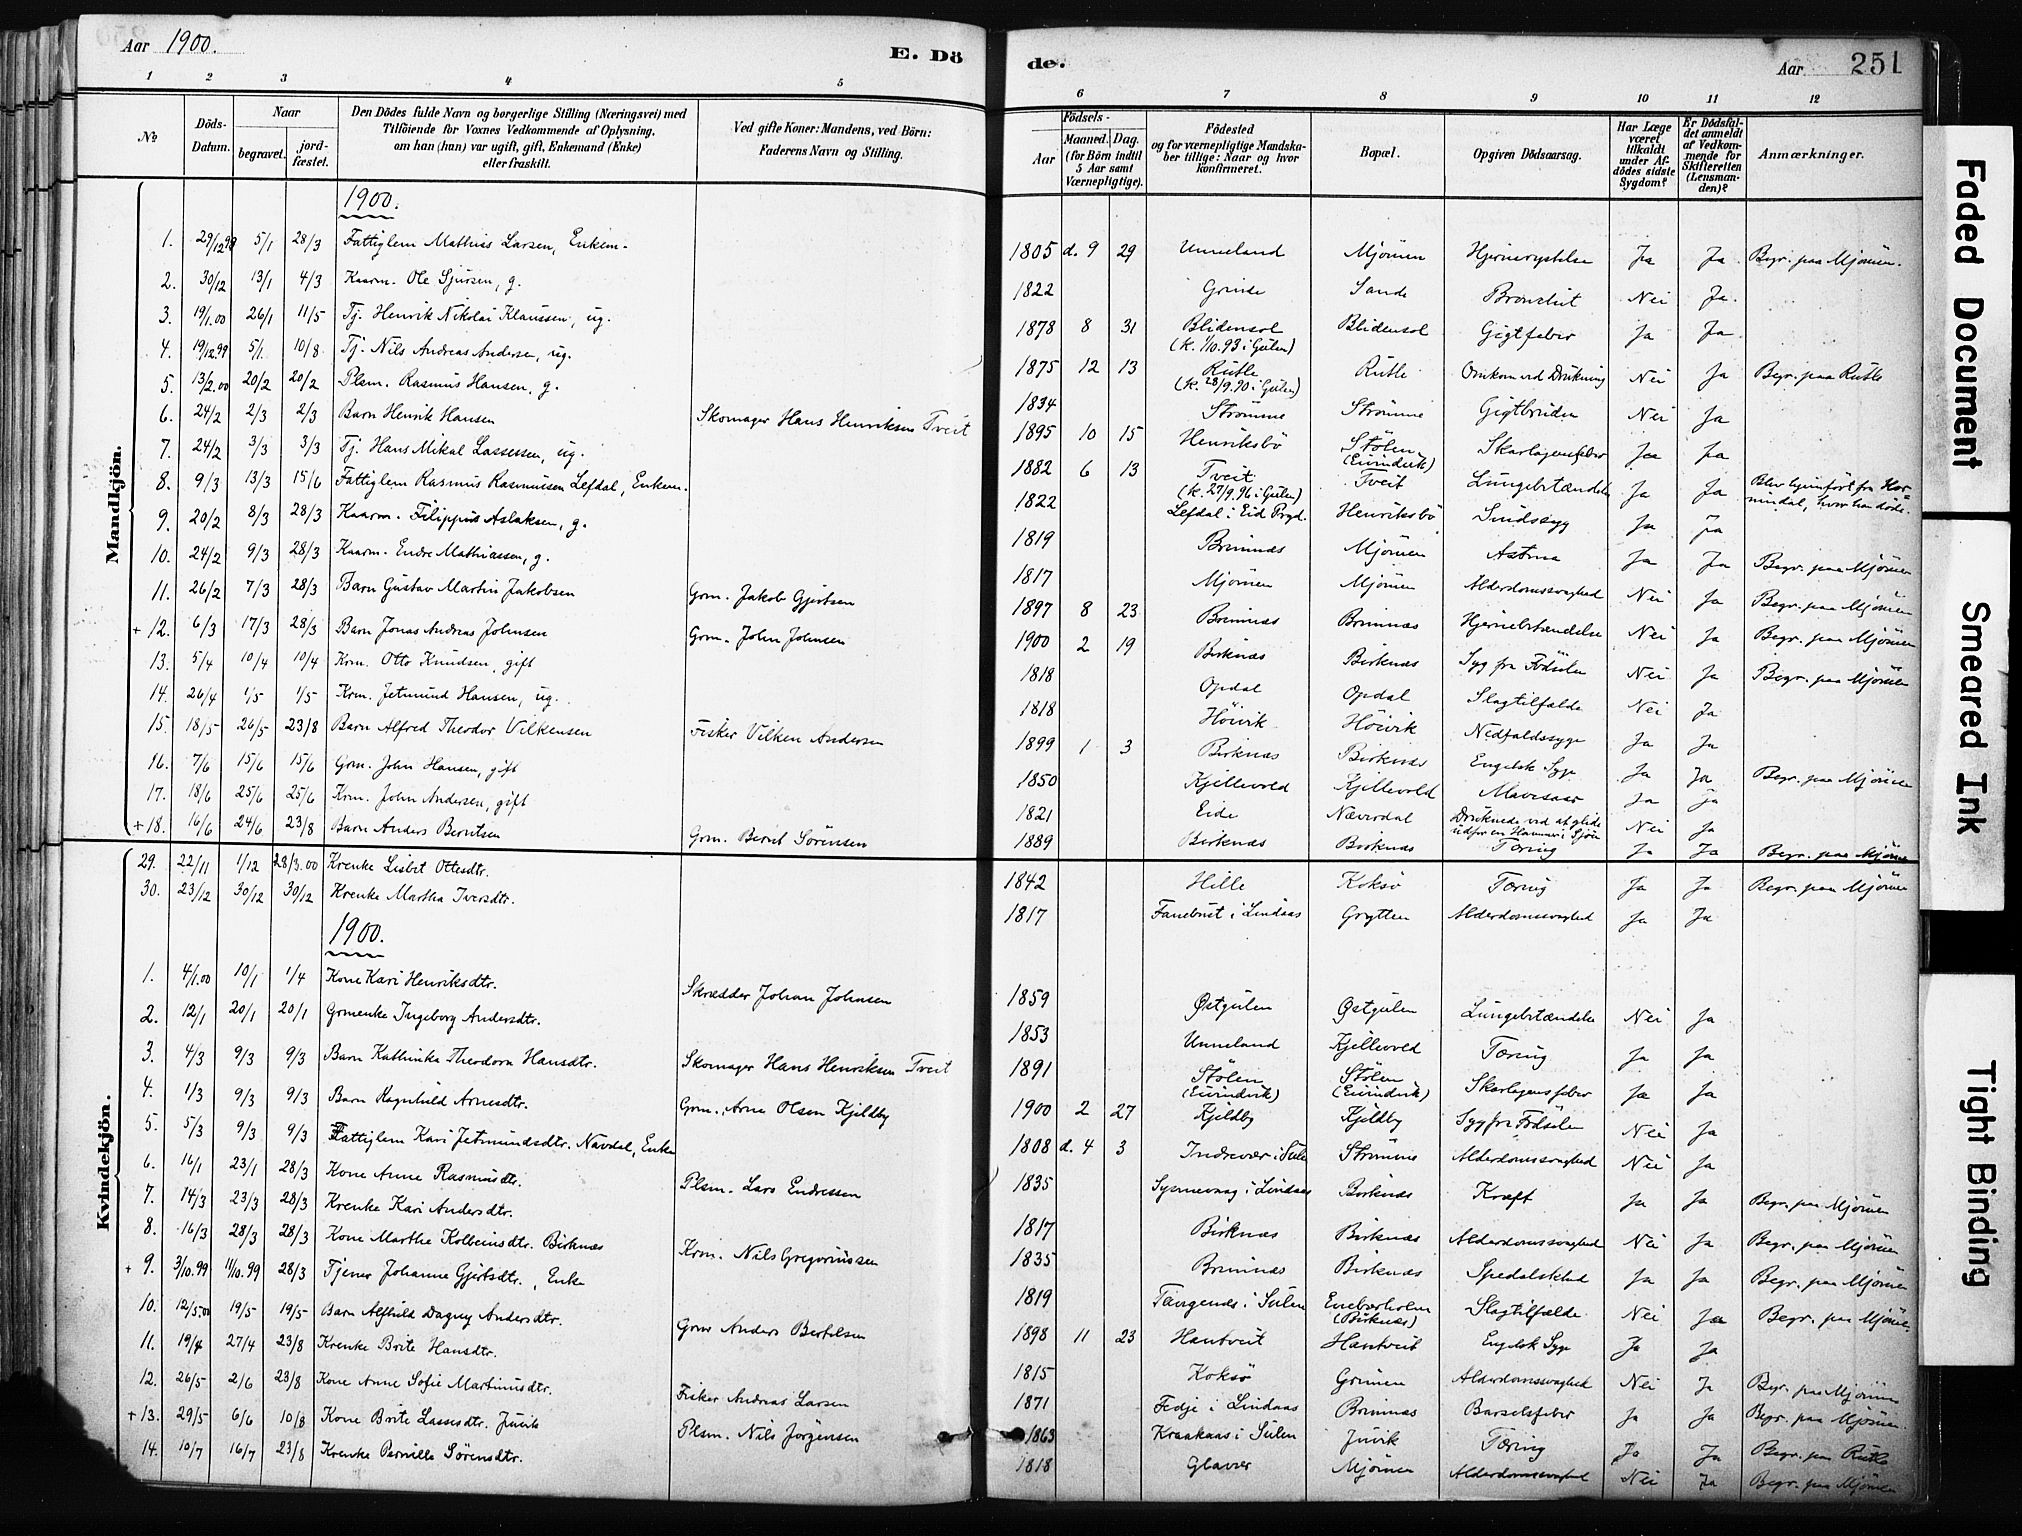 Aar 1900.
E. Dö
de.
Aar
251
1 2 3 4 5 6 7 8 9 10 11 12
No.
Döds-Datum.
Naar
begravet.
jord-fæstet.
Den Dödes fulde Navn og borgerlige Stilling (Næringsvei) med
Tilföiende for Voxnes Vedkommende af Oplysning,
om han (hun) var ugift, gift, Enkemand (Enke)
eller fraskilt.
Ved gifte Koner: Mandens, ved Börn:
Faderens Navn og Stilling.
Födsels-
Aar
Maaned.
Dag.
(for Börn indtil
5 Aar samt
Værnepligtige).
Födested
og for værnepligtige Mandska-
ber tillige: Naar og hvor
konfirmeret.
Bopæl.
Opgiven Dödsaarsag.
Har Læge
været
tilkaldt
under Af-
dödes sidste
Sygdom?
Er Dödsfal-
det anmeldt
af Vedkom-
mende for
Skifteretten
(Lensman-
den)?
Anmærkninger.
Mandkjön.
1900.
1. 29/12 99 5/1 28/3 Fattiglem Mathias Larsen, Enkem. 1805 d. 9 29 Unneland Mjömen Hjernerystelse Ja Ja Begr. paa Mjömen.
2. 30/12 13/1 4/3 Kaarm. Ole Sjursen, g. 1822 Grinde Sande Bronchit Nei Ja.
3. 19/1.00 26/1 11/5 Tj. Henrik Nikolai Klaussen, ug. 1878 8 31 Blidensol (k. 1/10.93 i Gulen) Blidensol Gigtfeber Ja Ja
4. 19/12.99 5/1 10/8 Tj. Nils Andreas Andersen, ug. 1875 12 13 Rutle (k. 28/9.90 i Gulen) Rutle Omkom ved Drukning Nei Ja Begr. paa Rutle
5. 13/2.00 20/2 20/2 Plsm. Rasmus Hansen, g. 1834 Strömme Strömme Gigtbruden Nei Ja
6. 24/2 2/3 2/3 Barn Henrik Hansen Skomager Hans Henriksen Tveit 1895 10 15 Henriksbö Stölen (Eivindvik) Skarlagensfeber Ja Ja
7. 24/2 3/3 3/3 Tj. Hans Mikal Lassesen, ug. 1882 6 13 Tveit (k. 27/9.96 i Gulen) Tveit Lungebetændelse Ja Ja
8. 9/3 13/3 15/6 Fattiglem Rasmus Rasmussen Lefdal, Enkem. 1822 Lefdal i Eid Prgd. Henriksbö Sindssyg Ja Ja Blev hjemført fra Hor=
nindal, hvor han døde.
9. 20/2 8/3 28/3 Kaarm. Filippus Aslaksen, g. 1819 Brunnæs Mjömen Astma Ja Ja Begr. paa Mjömen
10. 24/2 9/3 28/3 Kaarm. Endre Mathiassen, g. 1817 Mjömen Mjömen Alderdomssvaghed Nei Ja Begr. paa Mjömen
11. 26/2 7/3 28/3 Barn Gustav Martin Jakobsen Grm. Jakob Gjertsen 1897 8 23 Brunnæs Brunnæs Hjernebetændelse Nei Ja Begr. paa Mjömen
+ 12. 6/3 17/3 28/3 Barn Jonas Andreas Johnsen Grm. John Johnsen 1900 2 19 Birknæs Birknæs Syg fra Födselen Nei Ja Begr. paa Mjömen
13. 5/4 10/4 10/4 Krm. Otto Knudsen, gift 1818 Opdal Opdal Slagtilfælde Nei Ja
14. 26/4 1/5 1/5 Krm. Jetmund Hansen, ug. 1818 Höivik Höivik Nedfaldssyge Ja Ja
15. 18/5 26/5 23/8 Barn Alfred Theodor Vilkensen Fisker Vilken Andersen 1899 1 3 Birknæs Birknæs Engelsk Syge Ja Ja Begr. paa Mjömen
16. 7/6 15/6 15/6 Grm. John Hansen, gift 1850 Kjellevold Kjellevold Mavesaar Ja Ja
17. 18/6 25/6 25/6 Krm. John Andersen, gift 1821 Eide Næverdal Druknede ved at glide
udfor en Hammer i Sjöen Nei Ja
+ 18. 16/6 24/6 23/8 Barn Anders Berntsen Grm. Bernt Sörensen 1889 Birknæs Birknæs Tæring Ja Ja Begr. paa Mjömen
Kvindekjön.
29. 22/11 1/12 28/3.00 Krenke Lisbet Ottesdtr. 1842 Hille Koksö Tæring Ja Ja Begr. paa Mjömen
30. 23/12 30/12 30/12 Krenke Martha Iversdtr. 1817 Fanebust i Lindaas Grytten Alderdomssvaghed Ja Ja
1900.
1. 4/1.00 10/1 1/4 Kone Kari Henriksdtr. Skrædder Johan Johnsen 1859 Østgulen Østgulen Lungebetændelse Nei Ja
2. 12/1 20/1 20/1 Grmenke Ingeborg Andersdtr. 1853 Unneland Kjellevold Tæring Ja Ja
3. 4/3 9/3 9/3 Barn Kathinka Theodora Hansdtr. Skomager Hans Henriksen Tveit 1891 Stölen (Eivindvik) Stölen (Eivindvik) Skarlagensfeber Ja Ja
4. 1/3 9/3 9/3 Barn Ragnhild Arnesdtr. Grm. Arne Olsen Kjeldby 1900 2 27 Kjeldby Kjeldby Syg fra Födselen Nei Ja
5. 5/3 9/3 9/3 Fattiglem Kari Jetmundsdtr. Navdal, Enke 1808 d. 4 3 Indrevær i Sulen Strömme Alderdomssvaghed Nei Ja
6. 16/1 23/1 28/3 Kone Anne Rasmusdtr. Plsm. Lars Endressen 1835 i Lindaas Birknæs Kræft Ja Ja Begr. paa Mjömen
7. 14/3 23/3 28/3 Krenke Kari Andersdtr. 1817 Birknæs Birknæs Alderdomssvaghed Nei Ja Begr. paa Mjömen
8. 16/3 28/3 28/3 Kone Marthe Kolbeinsdtr. Birknæs Krm. Nils Gregoriussen 1835 Brunnæs Birknæs Spedalskhed Ja Ja Begr. paa Mjömen
+ 9. 3/10.99 11/10.99 28/3 Tjener Johanne Gjertsdtr., Enke 1819 Tangenes i Sulen Eneberholm (Birknæs) Slagtilfælde Nei Ja Begr. paa Mjömen.
10. 12/5.00 19/5 19/5 Barn Alfhild Dagny Andersdtr. Grm Anders Bertelsen 1898 11 23 Hantveit Hantveit Engelsk Syge Ja Ja
11. 19/4 27/4 23/8 Krenke Brite Hansdtr. 1815 Koksö Grimen Alderdomssvaghed Nei Ja Begr. paa Mjömen
12. 26/5 2/6 23/8 Kone Anne Sofie Martinusdtr. Fisker Andreas Larsen 1871 Fedje i Lindaas Brunnæs Barselsfeber Ja Ja Begr. paa Mjömen.
+ 13. 29/5 6/6 10/8 Kone Brite Lassesdtr. Juvik Plsm. Nils Jörgensen 1863 Kraakaas i Sulen Juvik Tæring Ja Ja Begr. paa Rutle
14. 10/7 16/7 23/8 Krenke Pernille Sörensdtr. 1818 Glavær Mjömen Alderdomssvaghed Nei Ja Begr. paa Mjömen
Faded Document
Smeared Ink
Tight Binding